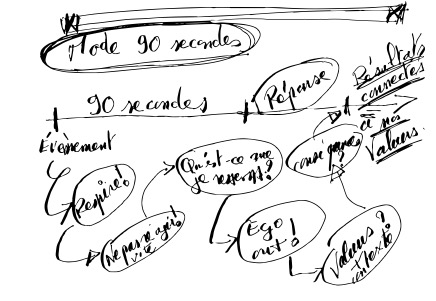 Mode 90 secondes
90 secondes
Réponse
Résultats
connectés
à nos
Valeurs.
Évènement
Respire!
Ne pas agir!
vite
Qu'est-ce que
je ressens?
Ego
out!
?
Valeurs?